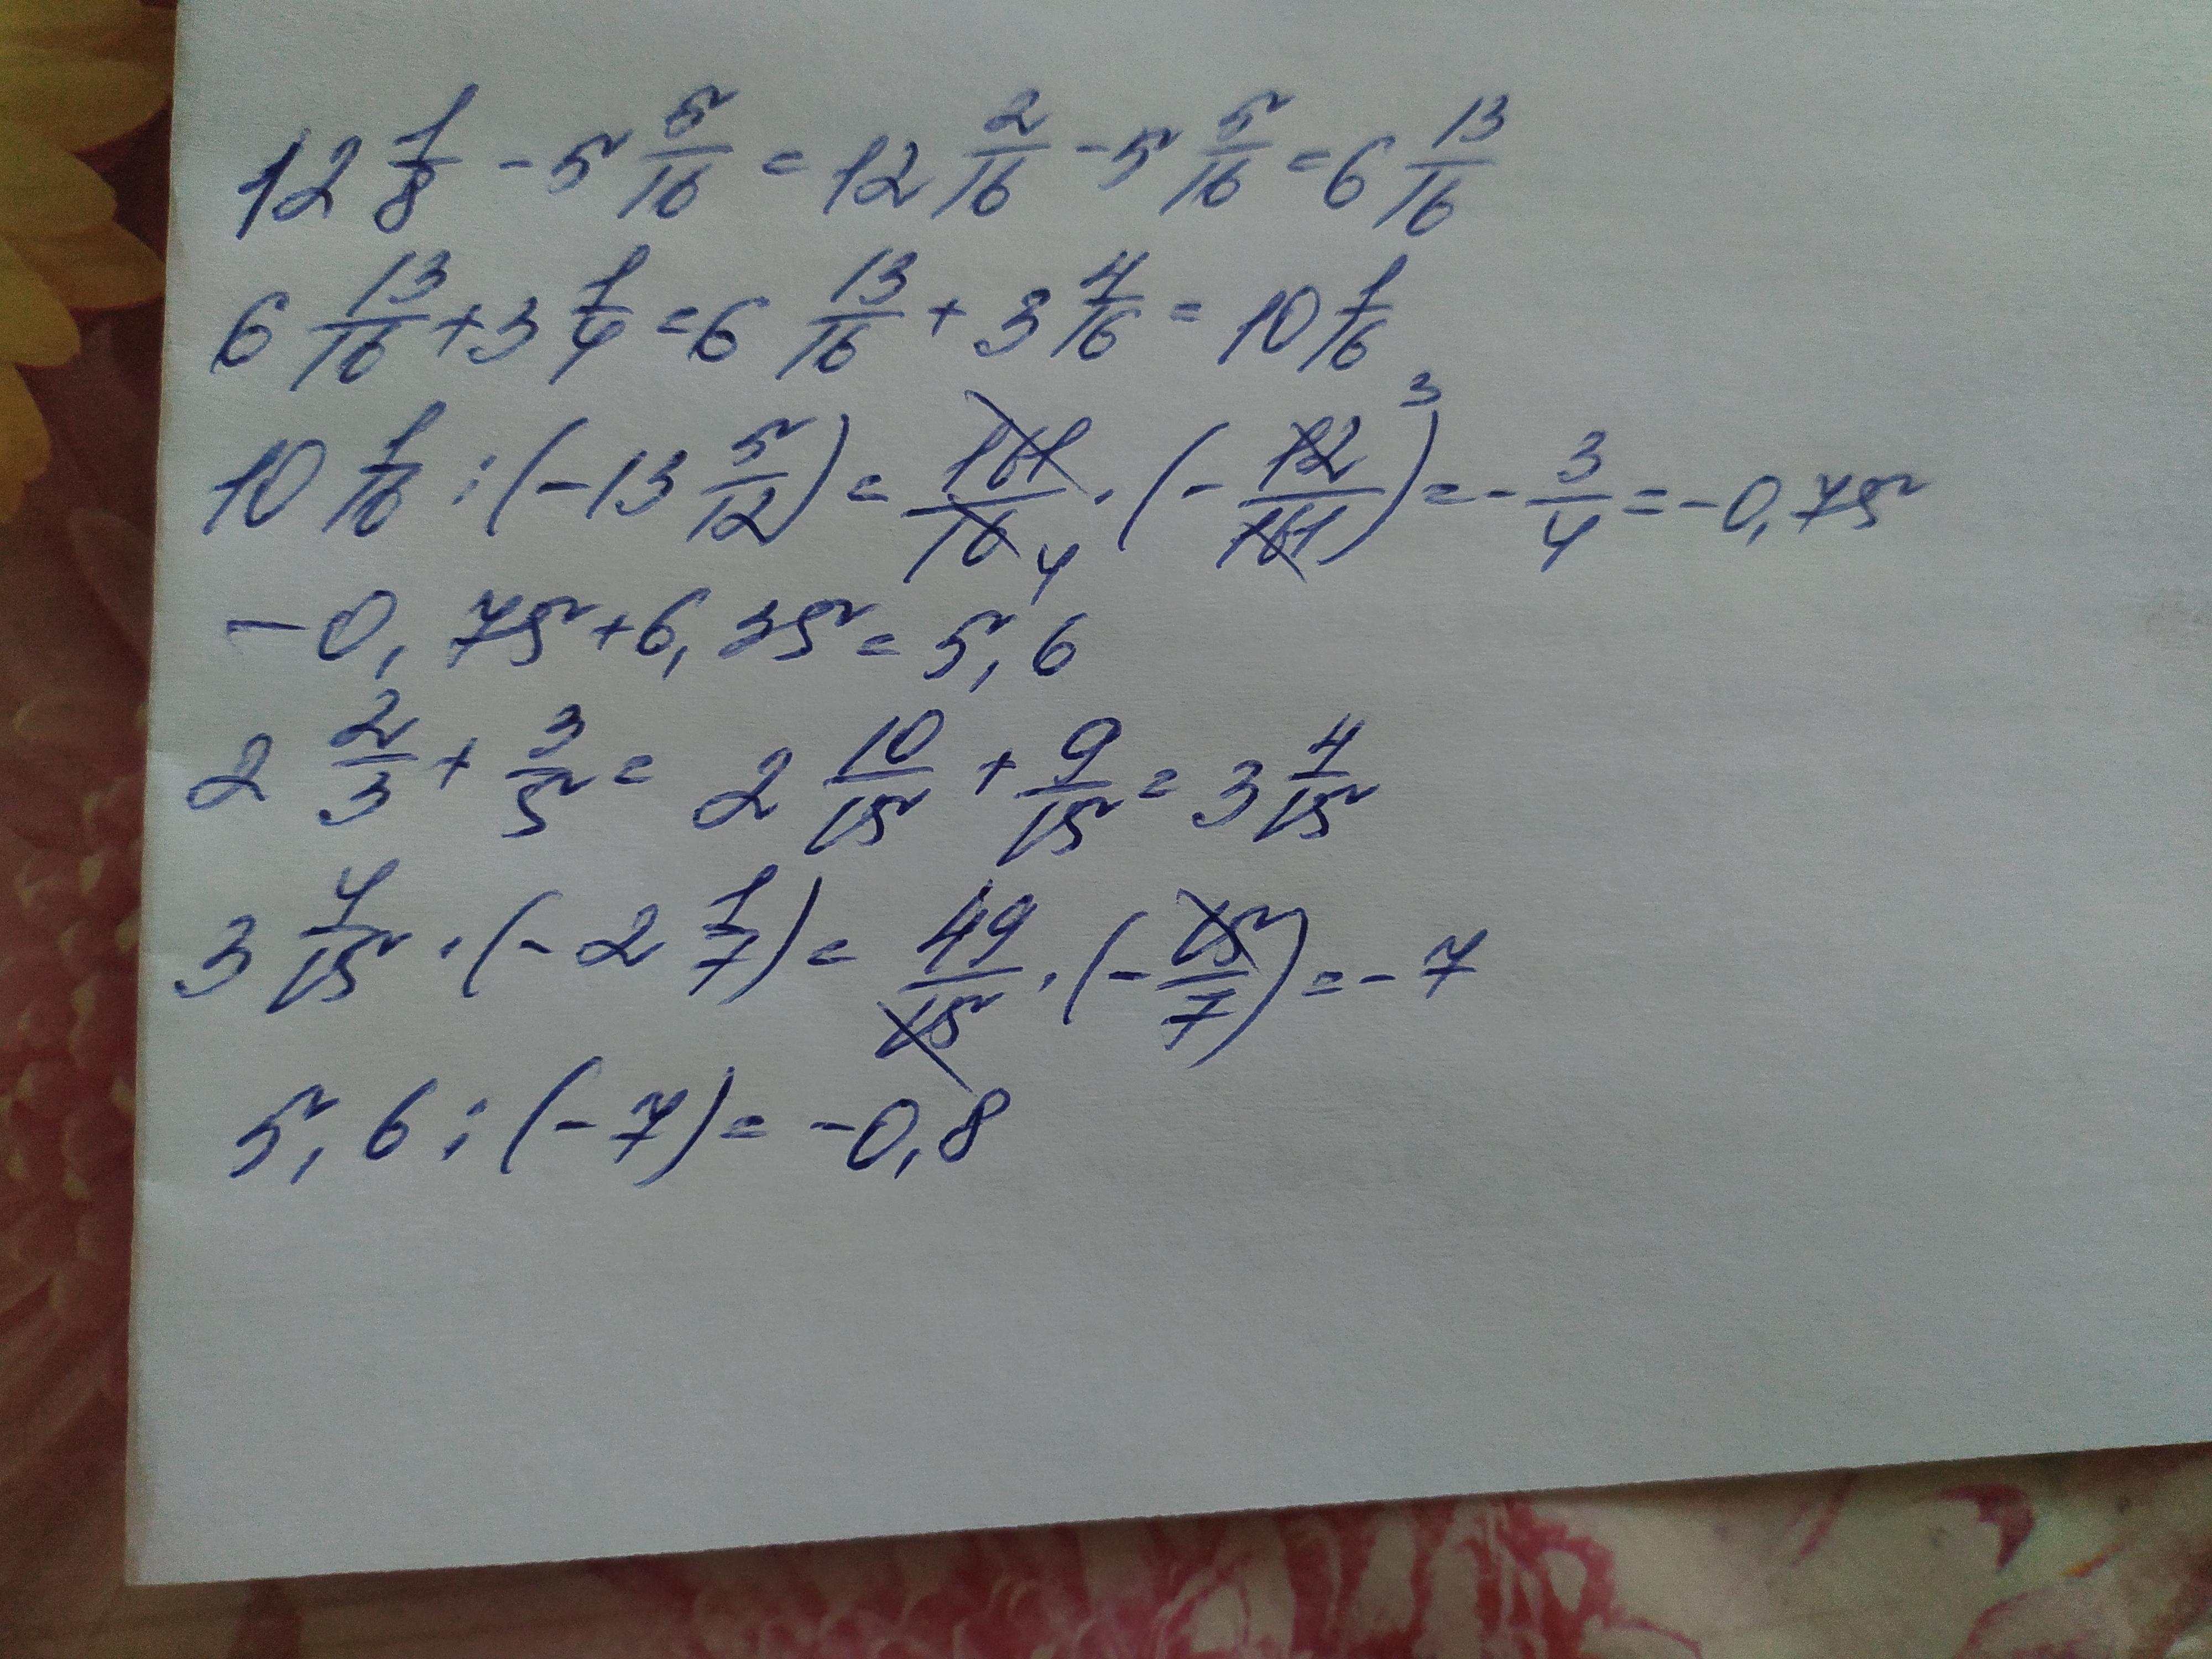 12 1/8 - 5 5/16 = 12 2/16 - 5 5/16 = 6 13/16
6 13/16 + 3 1/4 = 6 13/16 + 3 4/16 = 10 1/16
10 1/16 : (-13 5/12) = 161/16 4 · (- 12/161) 3 = - 3/4 = -0,75
-0,75 + 6,35 = 5,6
2 2/3 + 3/5 = 2 10/15 + 9/15 = 3 4/15
3 4/15 · (-2 1/7) = 49/15 · (- 15/7) = - 7
5,6 : (-7) = -0,8